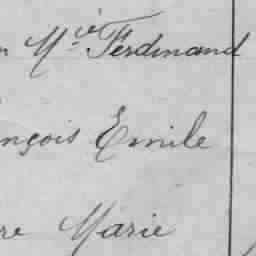 n M.ie Ferdinand
nçois Emile
re Marie